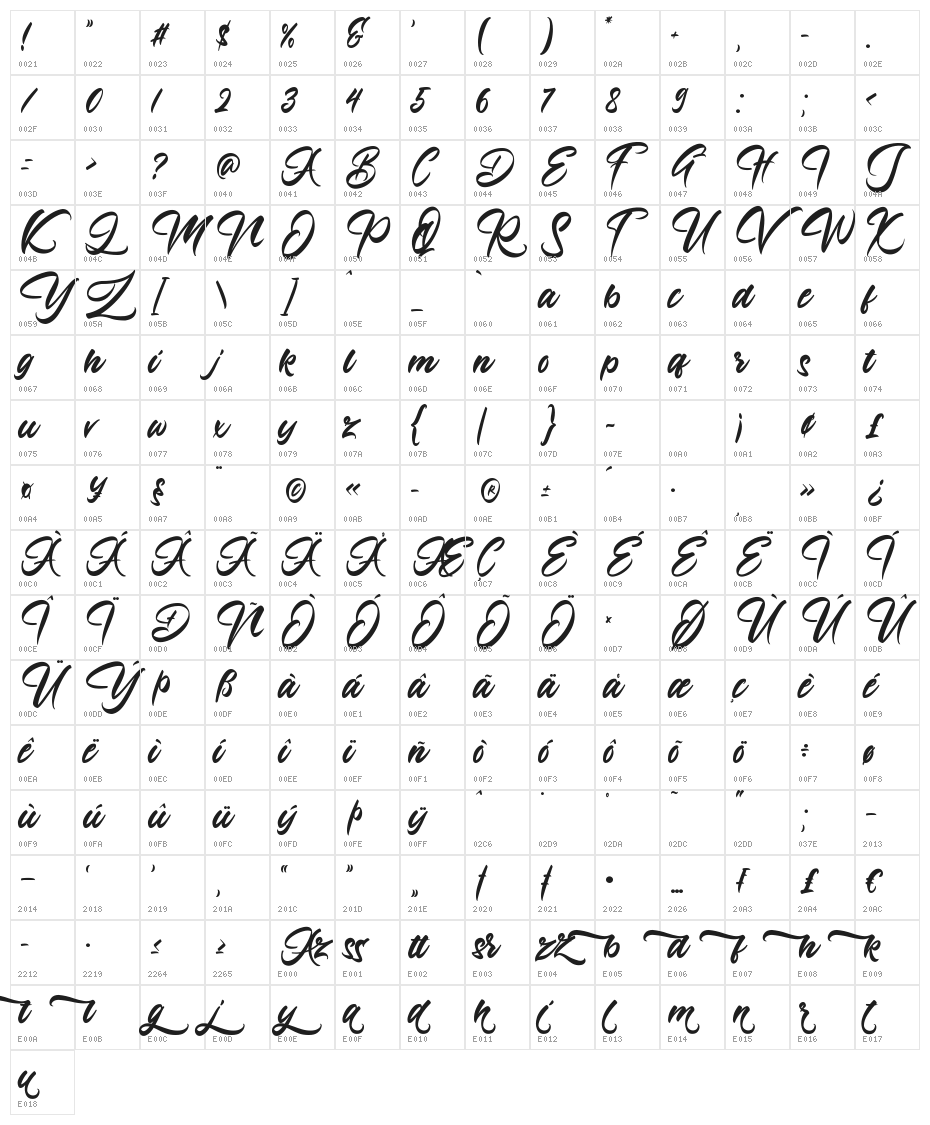 ! " # $ % & ' ( ) * + , - .
0021 0022 0023 0024 0025 0026 0027 0028 0029 002A 002B 002C 002D 002E
/ 0 1 2 3 4 5 6 7 8 9 : ; <
002F 0030 0031 0032 0033 0034 0035 0036 0037 0038 0039 003A 003B 003C
= > ? @ A B C D E F G H I J
003D 003E 003F 0040 0041 0042 0043 0044 0045 0046 0047 0048 0049 004A
K L M N O P Q R S T U V W X
004B 004C 004D 004E 004F 0050 0051 0052 0053 0054 0055 0056 0057 0058
Y Z [ \ ] ^ _ ` a b c d e f
0059 005A 005B 005C 005D 005E 005F 0060 0061 0062 0063 0064 0065 0066
g h i j k l m n o p q r s t
0067 0068 0069 006A 006B 006C 006D 006E 006F 0070 0071 0072 0073 0074
u v w x y z { | } ~ ¡ ¢ £
0075 0076 0077 0078 0079 007A 007B 007C 007D 007E 00A0 00A1 00A2 00A3
¤ ¥ § ¨ © « - ® ± ´ · ¸ » ¿
00A4 00A5 00A7 00A8 00A9 00AB 00AD 00AE 00B1 00B4 00B7 00B8 00BB 00BF
À Á Â Ã Ä Å Æ Ç È É Ê Ë Ì Í
00C0 00C1 00C2 00C3 00C4 00C5 00C6 00C7 00C8 00C9 00CA 00CB 00CC 00CD
Î Ï Ð Ñ Ò Ó Ô Õ Ö × Ø Ù Ú Û
00CE 00CF 00D0 00D1 00D2 00D3 00D4 00D5 00D6 00D7 00D8 00D9 00DA 00DB
Ü Ý Þ ß à á â ã ä å æ ç è é
00DC 00DD 00DE 00DF 00E0 00E1 00E2 00E3 00E4 00E5 00E6 00E7 00E8 00E9
ê ë ì í î ï ñ ò ó ô õ ö ÷ ø
00EA 00EB 00EC 00ED 00EE 00EF 00F1 00F2 00F3 00F4 00F5 00F6 00F7 00F8
ù ú û ü ý þ ÿ ˆ ˙ ˚ ˜ ˝ ; –
00F9 00FA 00FB 00FC 00FD 00FE 00FF 02C6 02D9 02DA 02DC 02DD 037E 2013
— ‘ ’ ‚ “ ” „ † ‡ • … ₣ ₤ €
2014 2018 2019 201A 201C 201D 201E 2020 2021 2022 2026 20A3 20A4 20AC
− ∙ ≤ ≥ Az ss tt sr zz b d f h k
2212 2219 2264 2265 E000 E001 E002 E003 E004 E005 E006 E007 E008 E009
t l g j y a d h i l m n r t
E00A E00B E00C E00D E00E E00F E010 E011 E012 E013 E014 E015 E016 E017
u
E018